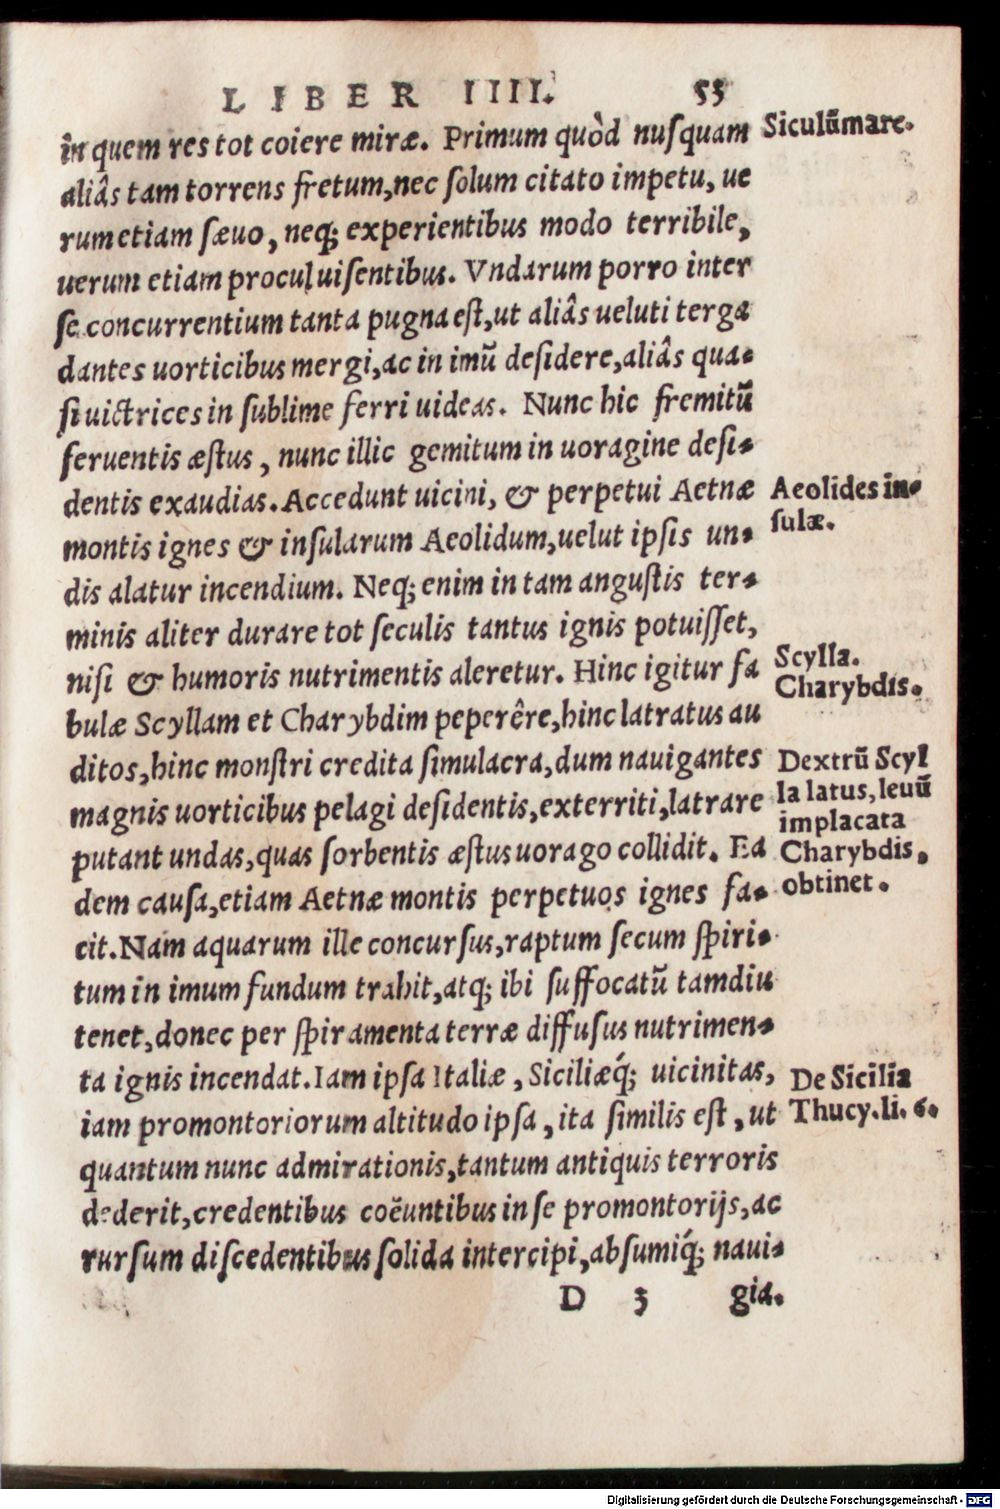 LIBER IIII. 55
in quem res tot coiere miræ. Primum quòd nuſquam
Siculūmare.
aliâs tam torrens fretum,nec ſolum citato impetu, ue
rum etiam ſæuo, neq; experientibus modo terribile,
uerum etiam procul uiſentibus. Vndarum porro inter
ſe concurrentium tanta pugna eſt,ut aliâs ueluti terga
dantes uorticibus mergi,ac in imū deſidere,aliâs qua-
ſi uictrices in ſublime ferri uideas. Nunc hic fremitū
feruentis æſtus, nunc illic gemitum in uoragine deſi-
dentis exaudias. Accedunt uicini, & perpetui Aetnæ
Aeolides in-
ſulæ.
montis ignes & inſularum Aeolidum,uelut ipſis un-
dis alatur incendium. Neq; enim in tam anguſtis ter-
minis aliter durare tot ſeculis tantus ignis potuiſſet,
niſi & humoris nutrimentis aleretur. Hinc igitur fa
Scylla.
Charybdis.
bulæ Scyllam et Charybdim peperêre,hinc latratus au
ditos,hinc monſtri credita ſimulacra,dum nauigantes
Dextrū Scyl
la latus, leuū
implacata
Charybdis,
obtinet.
magnis uorticibus pelagi deſidentis,exterriti,latrare
putant undas,quas ſorbentis æſtus uorago collidit. Ea
dem cauſa,etiam Aetnæ montis perpetuos ignes fa-
cit. Nam aquarum ille concurſus,raptum ſecum ſpiri-
tum in imum fundum trahit,atq; ibi ſuffocatū tamdiu
tenet,donec per ſpiramenta terræ diffuſus nutrimen-
ta ignis incendat. Iam ipſa Italiæ, Siciliæq́; uicinitas,
De Sicilia
Thucy.li. 6.
iam promontoriorum altitudo ipſa, ita ſimilis eſt, ut
quantum nunc admirationis,tantum antiquis terroris
dederit,credentibus coëuntibus in ſe promontorijs,ac
rurſum diſcedentibus ſolida intercipi,abſumiq́; naui-
D 3 gia.
Digitalisierung gefördert durch die Deutsche Forschungsgemeinschaft - DFG